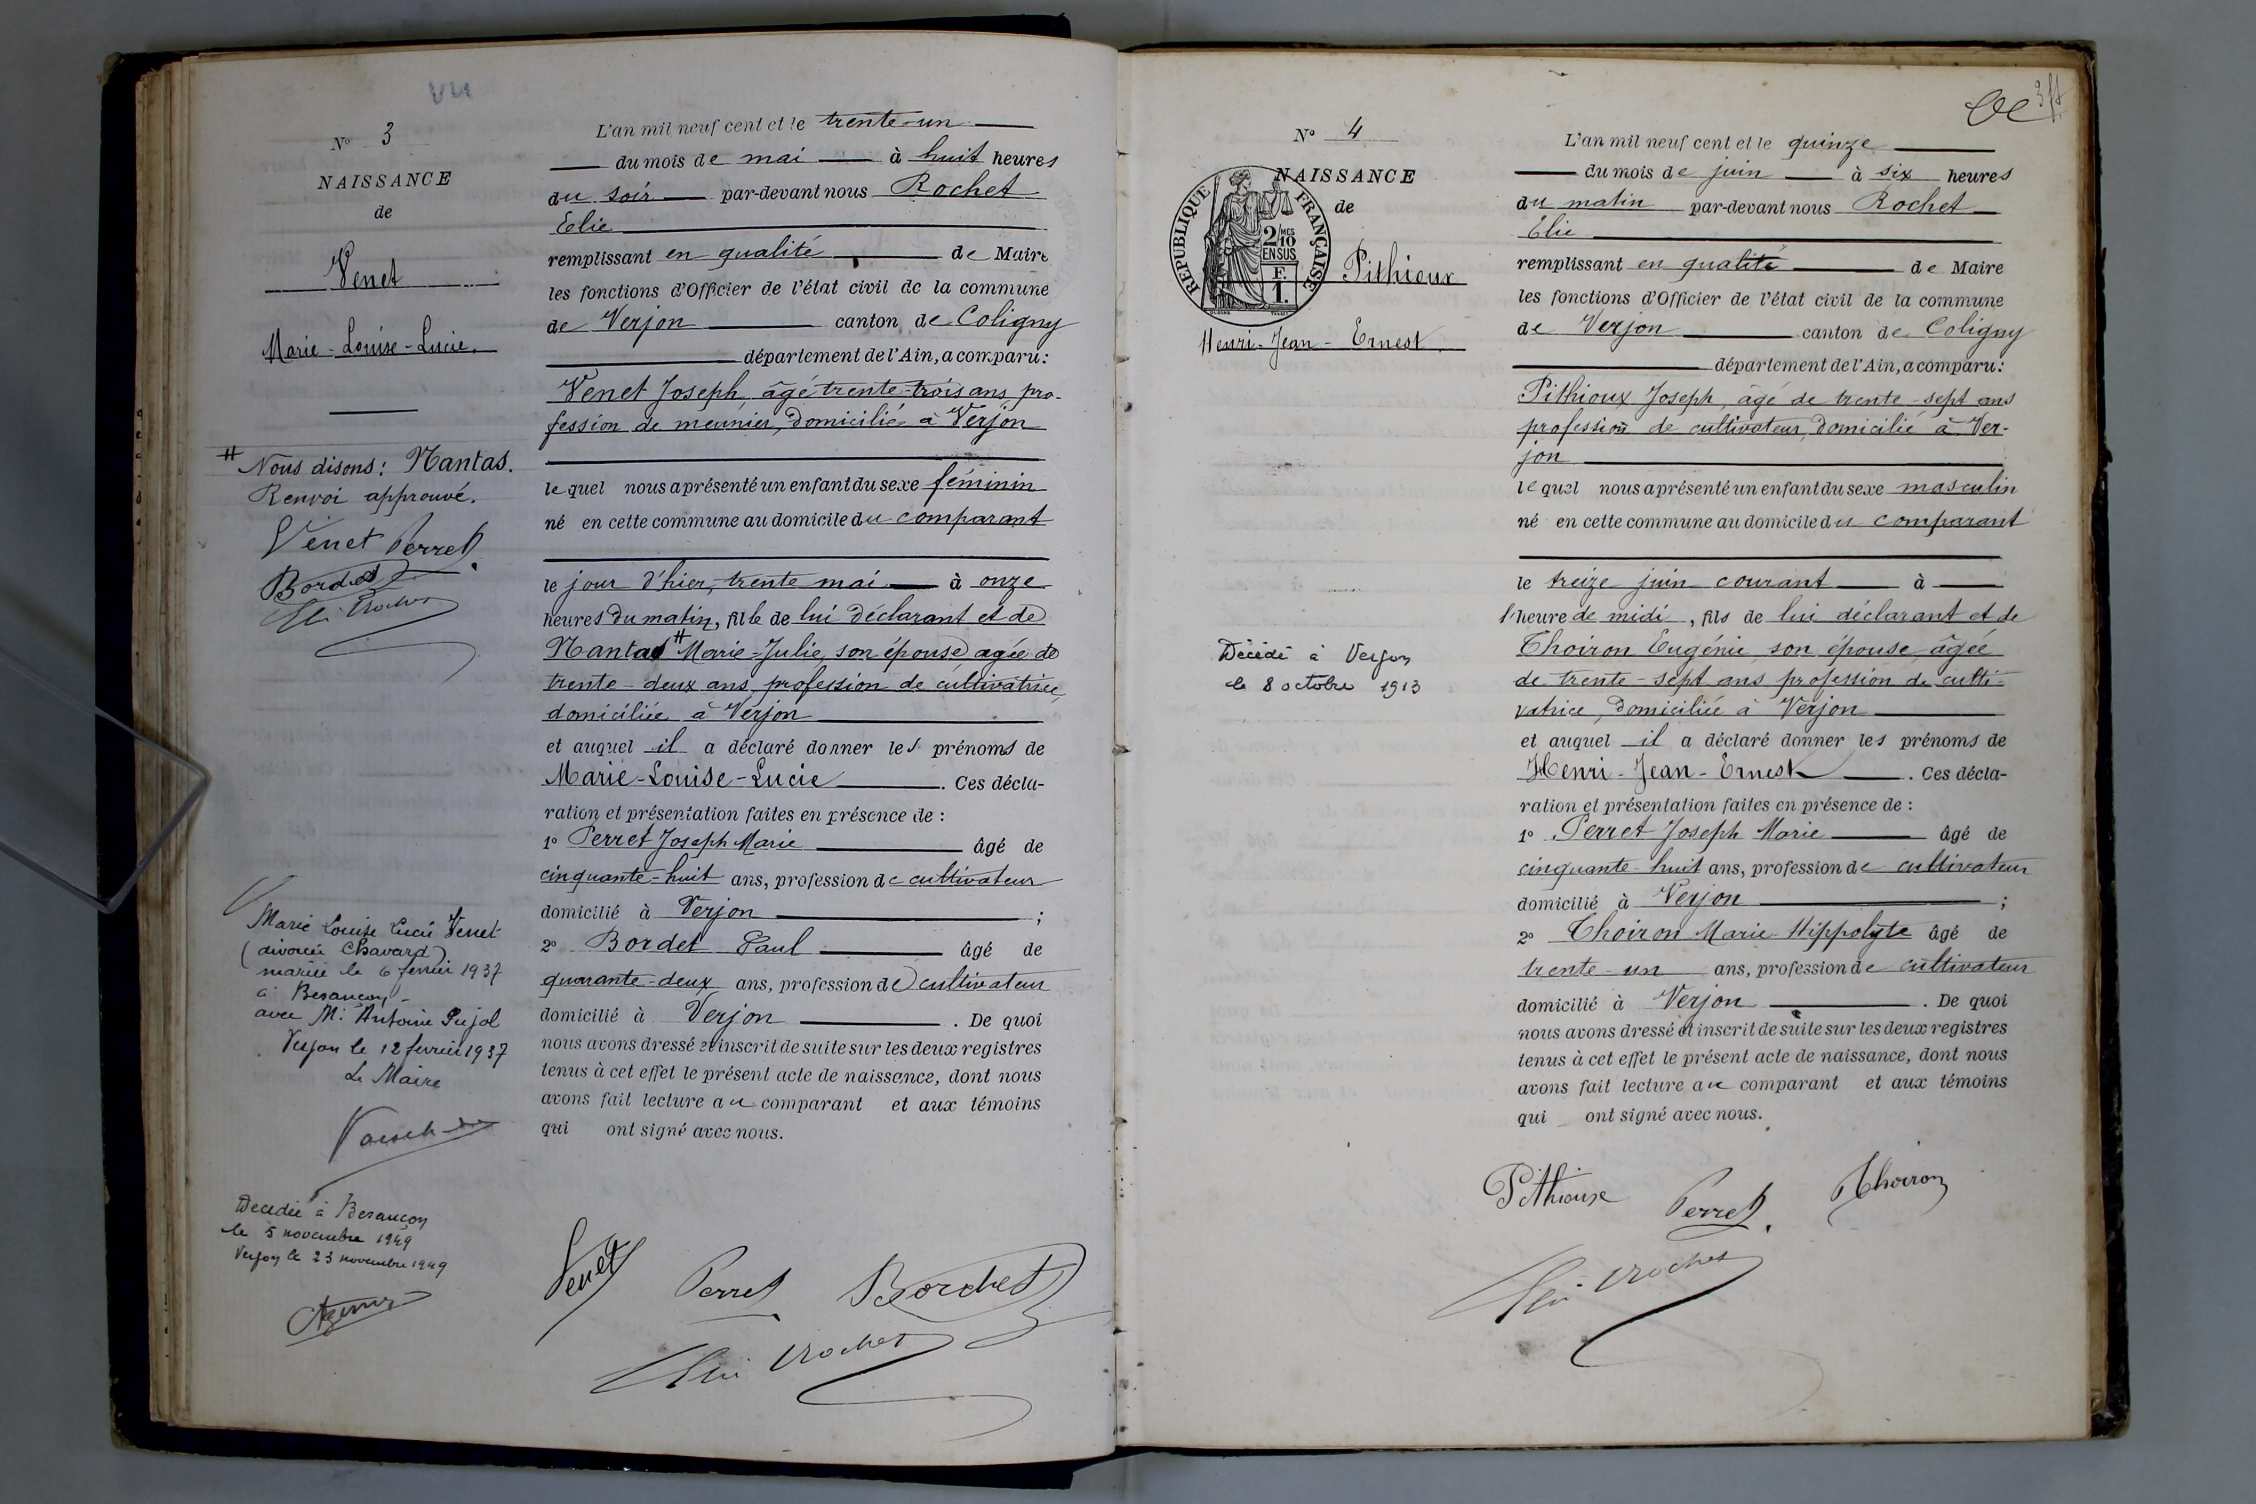 Nº 3
NAISSANCE
de
Venet
Marie-Louise-Lucie.
# Nous disons: Nantas.
Renvoi approuvé.
Venet Perret
Bordet
Elie Rochet
Marie Louise Lucie Venet
(divorcée Chavard)
mariée le 6 février 1937
à Besançon
avec Mr Antoine Pujol
Verjon le 12 février 1937
Le Maire
Décédée à Besançon
le 5 novembre 1949
Verjon le 23 novembre 1949
L'an mil neuf cent et le trente-un
du mois de mai à huit heures
du soir par-devant nous Rochet
Elie
remplissant en qualité de Maire
les fonctions d'Officier de l'état civil de la commune
de Verjon canton de Coligny
département de l'Ain, a comparu:
Venet Joseph, âgé trente-trois ans, pro-
fession de meunier, domicilié à Verjon
lequel nous a présenté un enfant du sexe féminin
né en cette commune au domicile du comparant
le jour d'hier, trente mai à onze
heures du matin, fille de lui déclarant et de
Nantas # Marie-Julie, son épouse, agée de
trente-deux ans, profession de cultivatrice,
domiciliée à Verjon
et auquel il a déclaré donner les prénoms de
Marie-Louise-Lucie. Ces décla-
ration et présentation faites en présence de :
1º Perret Joseph Marie âgé de
cinquante-huit ans, profession de cultivateur
domicilié à Verjon ;
2º Bordet Paul âgé de
quarante-deux ans, profession de cultivateur
domicilié à Verjon. De quoi
nous avons dressé et inscrit de suite sur les deux registres
tenus à cet effet le présent acte de naissance, dont nous
avons fait lecture au comparant et aux témoins
qui ont signé avec nous.
Venet Perret Bordet
Elie Rochet
Nº 4
NAISSANCE
de
REPUBLIQUE FRANÇAISE
2/10 MES
EN SUS
F.
1.
Pithioux
Henri-Jean-Ernest
Décédé à Verjon
le 8 octobre 1913
L'an mil neuf cent et le quinze
du mois de juin à six heures
du matin par-devant nous Rochet
Elie
remplissant en qualité de Maire
les fonctions d'Officier de l'état civil de la commune
de Verjon canton de Coligny
département de l'Ain, a comparu:
Pithioux Joseph, âgé de trente-sept ans
profession de cultivateur, domicilié à Ver-
jon
lequel nous a présenté un enfant du sexe masculin
né en cette commune au domicile du comparant
le treize juin courant à
l'heure de midi, fils de lui déclarant et de
Thoiron Eugénie, son épouse, âgée
de trente-sept ans, profession de culti-
vatrice, domiciliée à Verjon
et auquel il a déclaré donner les prénoms de
Henri-Jean-Ernest. Ces décla-
ration et présentation faites en présence de :
1º Perret Joseph Marie âgé de
cinquante-huit ans, profession de cultivateur
domicilié à Verjon ;
2º Thoiron Marie Hippolyte âgé de
trente-un ans, profession de cultivateur
domicilié à Verjon. De quoi
nous avons dressé et inscrit de suite sur les deux registres
tenus à cet effet le présent acte de naissance, dont nous
avons fait lecture au comparant et aux témoins
qui ont signé avec nous.
Pithioux Perret Thoiron
Elie Rochet